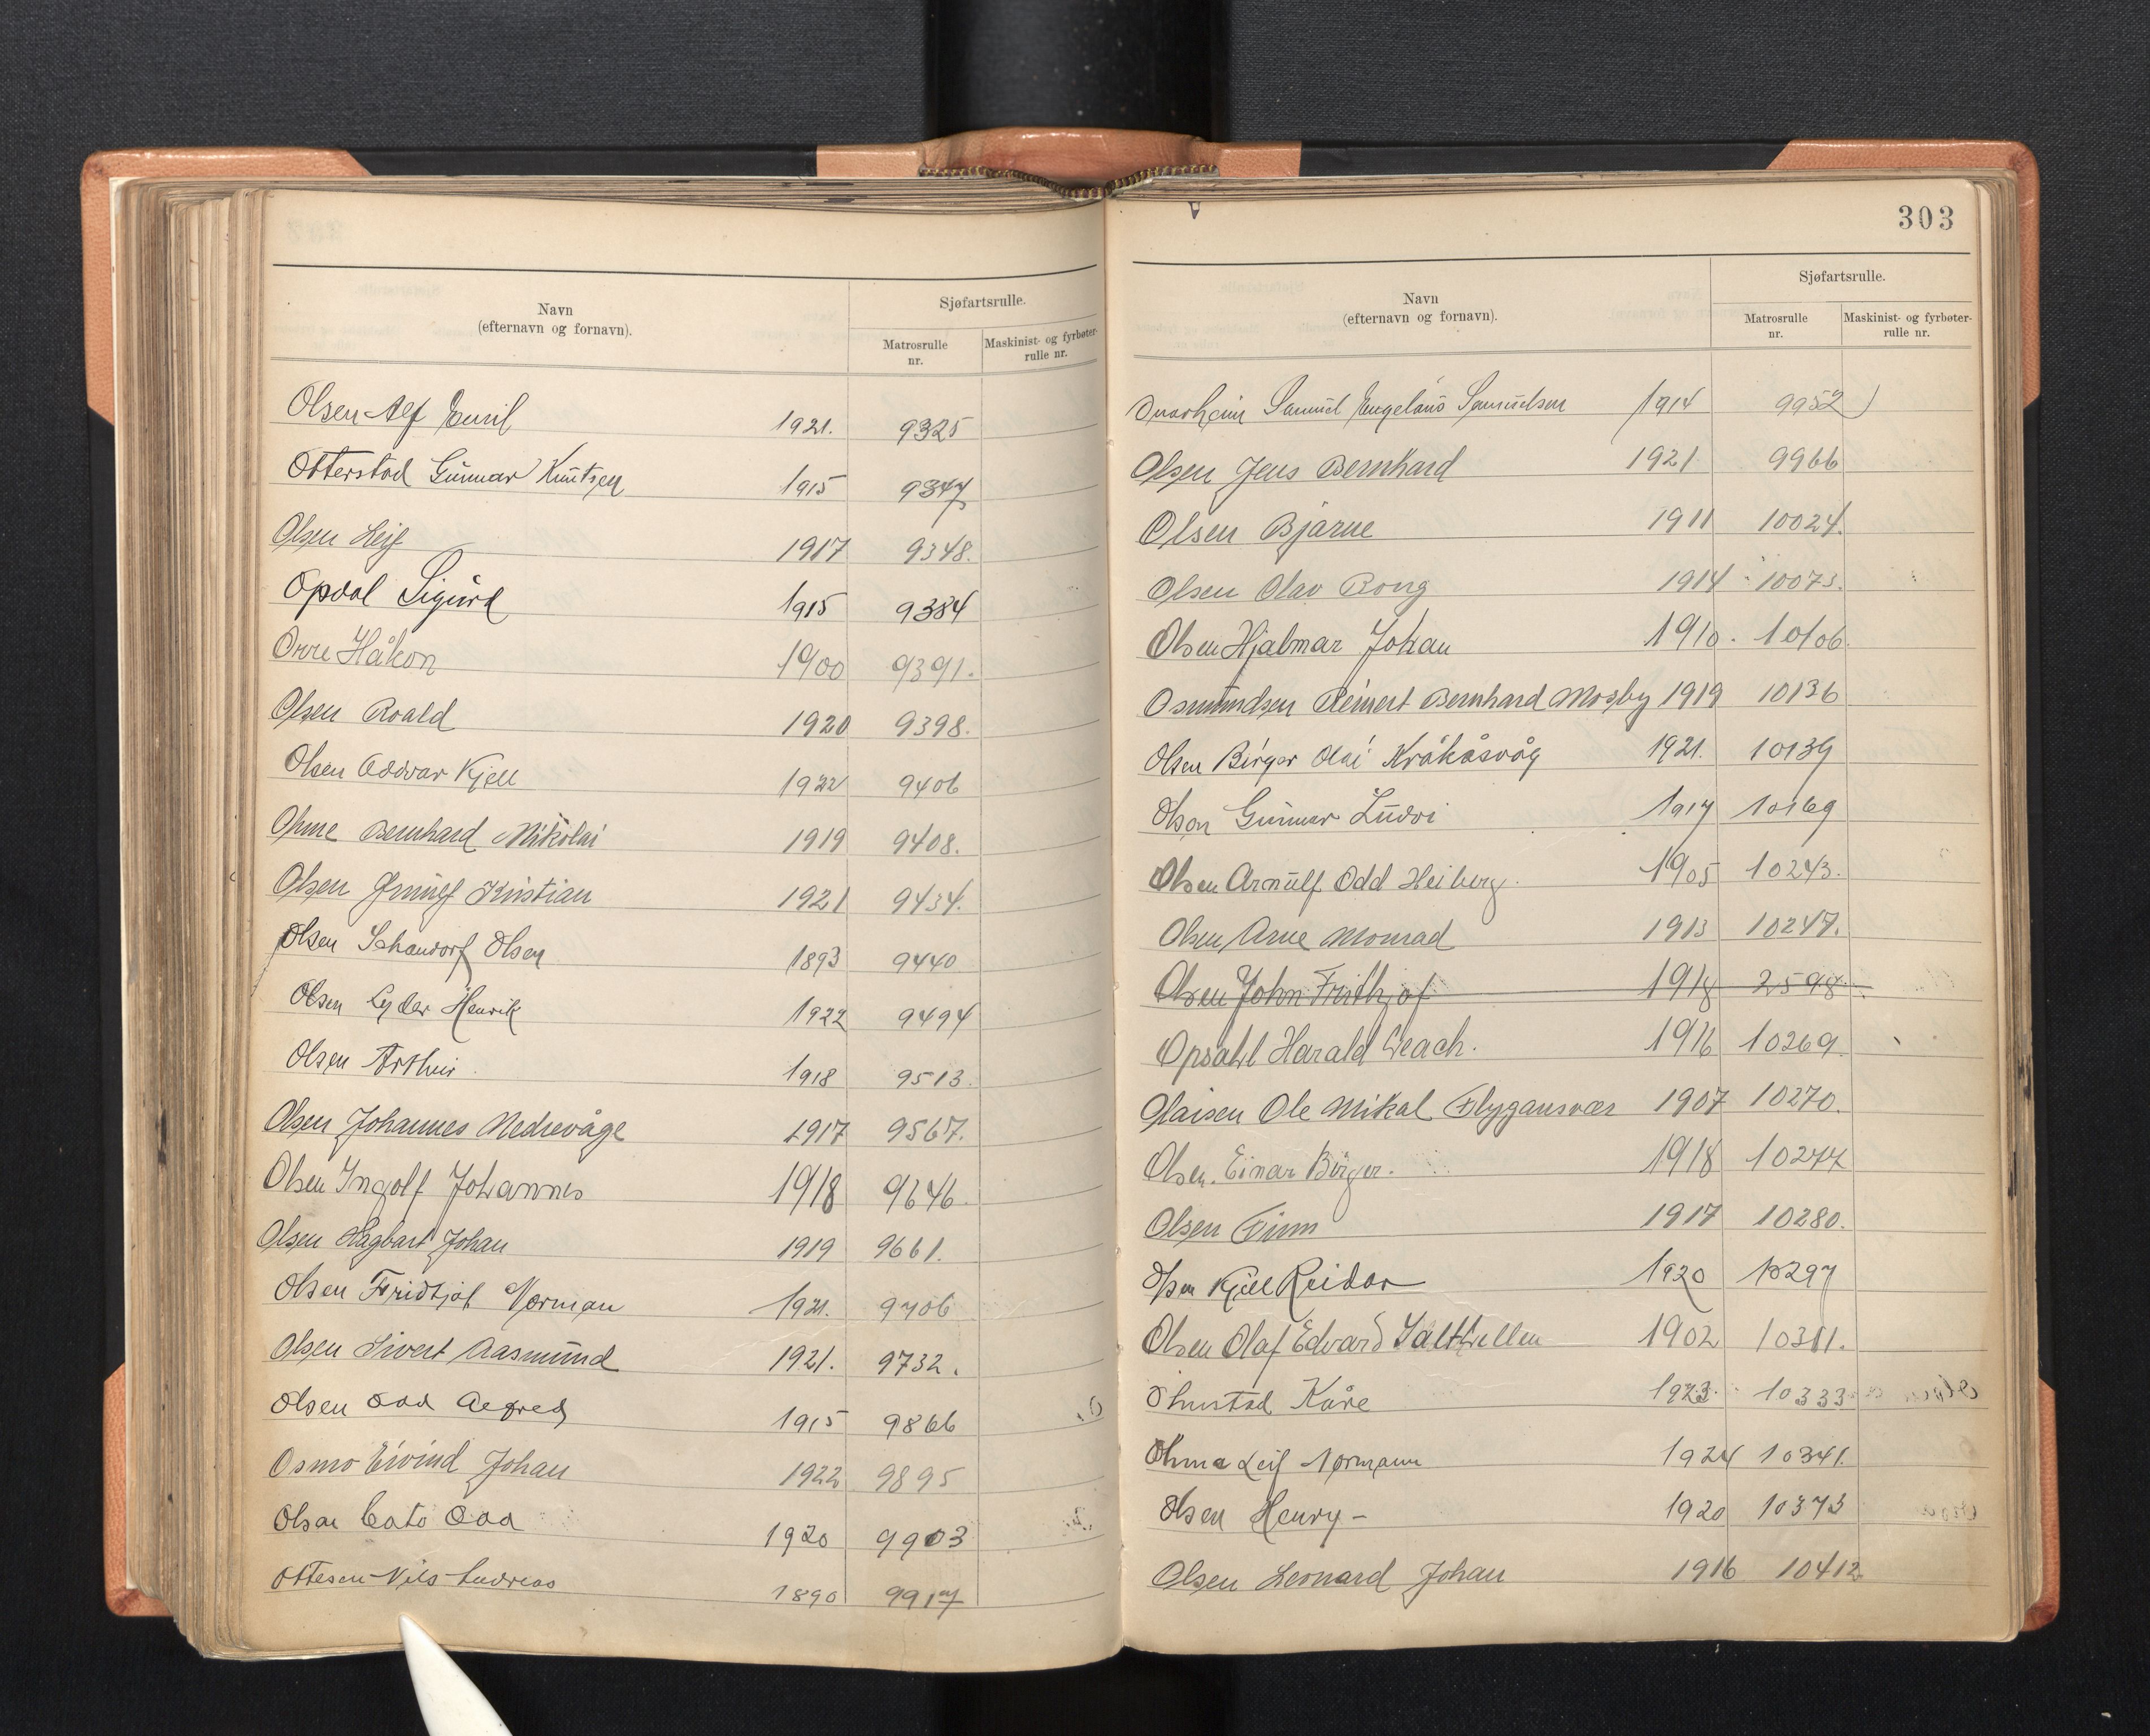 Navn
(efternavn og fornavn).
Sjøfartsrulle.
Matrosrulle
nr.
Maskinist- og fyrbøter-
rulle nr.
Olsen Alf Emil 1921. 9325
Otterstad Gunnar Knutsen 1915 9347
Olsen Leif 1917 9348.
Opdal Sigurd 1915 9384
Orre Håkon 1900 9391.
Olsen Roald 1920 9398.
Olsen Oddvar Kjell 1922 9406
Ohme Bernhard Nikolai 1919 9408.
Olsen Kristian 1921 9434.
Olsen Schandorf Olsen 1893 9440
Olsen Lyder Henrik 1922 9494
Olsen Arthur 1918 9513.
Olsen Johannes Nedrevåge 1917 9567.
Olsen Ingolf Johannes 1918 9646.
Olsen Hagbart Johan 1919 9661.
Olsen Fridtjof Norman 1921. 9706
Olsen Sivert Aasmund 1921. 9732.
Olsen Odd Alfred 1915 9866
Osmo Eivind Johan 1922 9895
Olsen Cato Odd 1920 9903
Ottesen Nils Andreas 1890 9917
303
Navn
(efternavn og fornavn).
Sjøfartsrulle.
Matrosrulle
nr.
Maskinist- og fyrbøter-
rulle nr.
Samuel Samuelsen 1914 9952
Olsen Jens Bernhard 1921 9966
Olsen Bjarne 1911 10024.
Olsen Olav Rong 1914 10073.
Olsen Hjalmar Johan 1910. 10106.
Osmundsen Reinert Bernhard Mosby 1919 10136
Olsen Birger Olai Kråkåsvåg 1921. 10139
Olsen Gunnar Ludvi 1917 10169
Olsen Arnulf Odd Heiberg. 1905 10243.
Olsen Arne Monrad 1913 10247.
Olsen John Frithjof 1918 2598
Opsahl Harald Leach. 1916 10269.
Olaisen Ole Mikal Flygansvær 1907 10270.
Olsen Einar Birger. 1918 10277
Olsen Finn 1917 10280.
Olsen Kjell Reidar 1920 10297
Olsen Olaf Edvard Salthellen 1902 10311.
Ohnstad Kåre 1923. 10333
Ohma Leif Normann 1924 10341.
Olsen Henry - 1920 10373
Olsen Leonard Johan 1916 10412